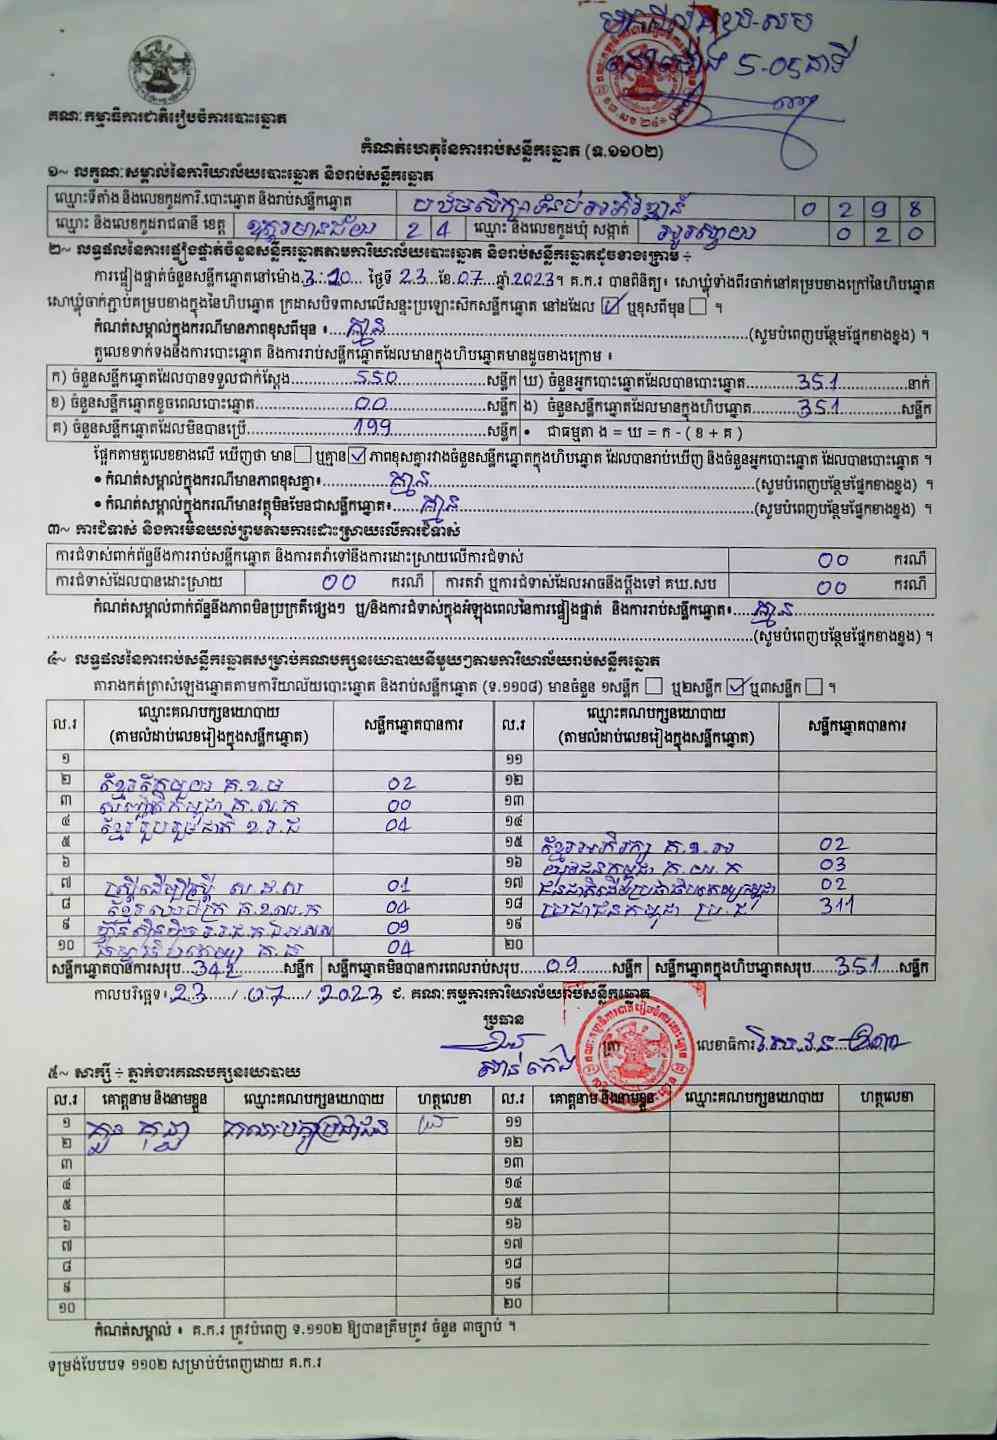 គណៈកម្មាធិការជាតិរៀបចំការបោះឆ្នោត
5-05 នាទី
កំណត់ហេតុនៃការរាប់សន្លឹកឆ្នោត (ទ.១១០២)
១~ លក្ខណៈសម្គាល់នៃការិយាល័យបោះឆ្នោត និងរាប់សន្លឹកឆ្នោត
ឈ្មោះទីតាំង និងលេខកូដការិ.បោះឆ្នោត និងរាប់សន្លឹកឆ្នោត 0 2 9 8
ឈ្មោះ និងលេខកូដរាជធានី ខេត្ត ឧត្តរមានជ័យ 2 4 ឈ្មោះ និងលេខកូដឃុំ សង្កាត់ 0 2 0
២~ លទ្ធផលនៃការផ្ទៀងផ្ទាត់ចំនួនសន្លឹកឆ្នោតតាមការិយាល័យបោះឆ្នោត និងរាប់សន្លឹកឆ្នោតដូចខាងក្រោម ÷
ការផ្ទៀងផ្ទាត់ចំនួនសន្លឹកឆ្នោតនៅម៉ោង 3:20 ថ្ងៃទី 23 ខែ 07 ឆ្នាំ 2023។ គ.ក.រ បានពិនិត្យ៖ សោឃ្លុំទាំងពីរចាក់នៅគម្របខាងក្រៅនៃហិបឆ្នោត
សោឃ្លុំចាក់ភ្ជាប់គម្របខាងក្នុងនៃហិបឆ្នោត ក្រដាសបិទពាសលើសន្ទះប្រឡោះសិកសន្លឹកឆ្នោត នៅដដែល ☑ ឬខុសពីមុន ☐ ។
កំណត់សម្គាល់ក្នុងករណីមានភាពខុសពីមុន ៖ គ្មាន (សូមបំពេញបន្ថែមផ្នែកខាងខ្នង) ។
តួលេខទាក់ទងនឹងការបោះឆ្នោត និងការរាប់សន្លឹកឆ្នោតដែលមានក្នុងហិបឆ្នោតមានដូចខាងក្រោម ៖
ក) ចំនួនសន្លឹកឆ្នោតដែលបានទទួលជាក់ស្តែង 550 សន្លឹក ឃ) ចំនួនអ្នកបោះឆ្នោតដែលបានបោះឆ្នោត 351 នាក់
ខ) ចំនួនសន្លឹកឆ្នោតខូចពេលបោះឆ្នោត 00 សន្លឹក ង) ចំនួនសន្លឹកឆ្នោតដែលមានក្នុងហិបឆ្នោត 351 សន្លឹក
គ) ចំនួនសន្លឹកឆ្នោតដែលមិនបានប្រើ 199 សន្លឹក • ជាធម្មតា ង = ឃ = ក - ( ខ + គ )
ផ្អែកតាមតួលេខខាងលើ ឃើញថា មាន ☐ ឬគ្មាន ☑ ភាពខុសគ្នារវាងចំនួនសន្លឹកឆ្នោតក្នុងហិបឆ្នោត ដែលបានរាប់ឃើញ និងចំនួនអ្នកបោះឆ្នោត ដែលបានបោះឆ្នោត ។
• កំណត់សម្គាល់ក្នុងករណីមានភាពខុសគ្នា៖ គ្មាន (សូមបំពេញបន្ថែមផ្នែកខាងខ្នង) ។
• កំណត់សម្គាល់ក្នុងករណីមានវត្ថុមិនមែនជាសន្លឹកឆ្នោត៖ គ្មាន (សូមបំពេញបន្ថែមផ្នែកខាងខ្នង) ។
៣~ ការជំទាស់ និងការមិនយល់ព្រមតាមការដោះស្រាយលើការជំទាស់
ការជំទាស់ពាក់ព័ន្ធនឹងការរាប់សន្លឹកឆ្នោត និងការតវ៉ាទៅនឹងការដោះស្រាយលើការជំទាស់ 00 ករណី
ការជំទាស់ដែលបានដោះស្រាយ 00 ករណី ការតវ៉ា ឬការជំទាស់ដែលអាចនឹងប្តឹងទៅ គឃ.សប 00 ករណី
កំណត់សម្គាល់ពាក់ព័ន្ធនឹងភាពមិនប្រក្រតីផ្សេងៗ ឬ/និងការជំទាស់ក្នុងអំឡុងពេលនៃការផ្ទៀងផ្ទាត់ និងការរាប់សន្លឹកឆ្នោត៖ គ្មាន
(សូមបំពេញបន្ថែមផ្នែកខាងខ្នង) ។
៤~ លទ្ធផលនៃការរាប់សន្លឹកឆ្នោតសម្រាប់គណបក្សនយោបាយនីមួយៗតាមការិយាល័យរាប់សន្លឹកឆ្នោត
តារាងកត់ត្រាសំឡេងឆ្នោតតាមការិយាល័យបោះឆ្នោត និងរាប់សន្លឹកឆ្នោត (ទ.១១០៨) មានចំនួន ១សន្លឹក ☐ ឬ២សន្លឹក ☑ ឬ៣សន្លឹក ☐ ។
ល.រ ឈ្មោះគណបក្សនយោបាយ (តាមលំដាប់លេខរៀងក្នុងសន្លឹកឆ្នោត) សន្លឹកឆ្នោតបានការ ល.រ ឈ្មោះគណបក្សនយោបាយ (តាមលំដាប់លេខរៀងក្នុងសន្លឹកឆ្នោត) សន្លឹកឆ្នោតបានការ
១ ១១
២ ខ្មែររួបរួម គ.ខ.ម 02 ១២
៣ 00 ១៣
៤ ខ្មែររួបរួមជាតិ ខ.រ.ជ 04 ១៤
៥ ១៥ ខ្មែរអភិរក្ស គ.ខ.អ 02
៦ ១៦ យុវជនកម្ពុជា គ.យ.ក 03
៧ ស្ត្រីដើម្បីស្ត្រី ស.ដ.ស 01 ១៧ 02
៨ 04 ១៨ ប្រជាជនកម្ពុជា ប្រ.ជ 311
៩ 09 ១៩
១០ 04 ២០
សន្លឹកឆ្នោតបានការសរុប 342 សន្លឹក សន្លឹកឆ្នោតមិនបានការពេលរាប់សរុប 09 សន្លឹក សន្លឹកឆ្នោតក្នុងហិបឆ្នោតសរុប 351 សន្លឹក
កាលបរិច្ឆេទ៖ 23 / 07 / 2023 ជ. គណៈកម្មការការិយាល័យរាប់សន្លឹកឆ្នោត
ប្រធាន
ត្រា លេខាធិការ
៥~ សាក្សី ÷ ភ្នាក់ងារគណបក្សនយោបាយ
ល.រ គោត្តនាម និងនាមខ្លួន ឈ្មោះគណបក្សនយោបាយ ហត្ថលេខា ល.រ គោត្តនាម និងនាមខ្លួន ឈ្មោះគណបក្សនយោបាយ ហត្ថលេខា
១ គណបក្សប្រជាជន ១១
២ ១២
៣ ១៣
៤ ១៤
៥ ១៥
៦ ១៦
៧ ១៧
៨ ១៨
៩ ១៩
១០ ២០
កំណត់សម្គាល់ ៖ គ.ក.រ ត្រូវបំពេញ ទ.១១០២ ឱ្យបានត្រឹមត្រូវ ចំនួន ៣ច្បាប់ ។
ទម្រង់បែបបទ ១១០២ សម្រាប់បំពេញដោយ គ.ក.រ